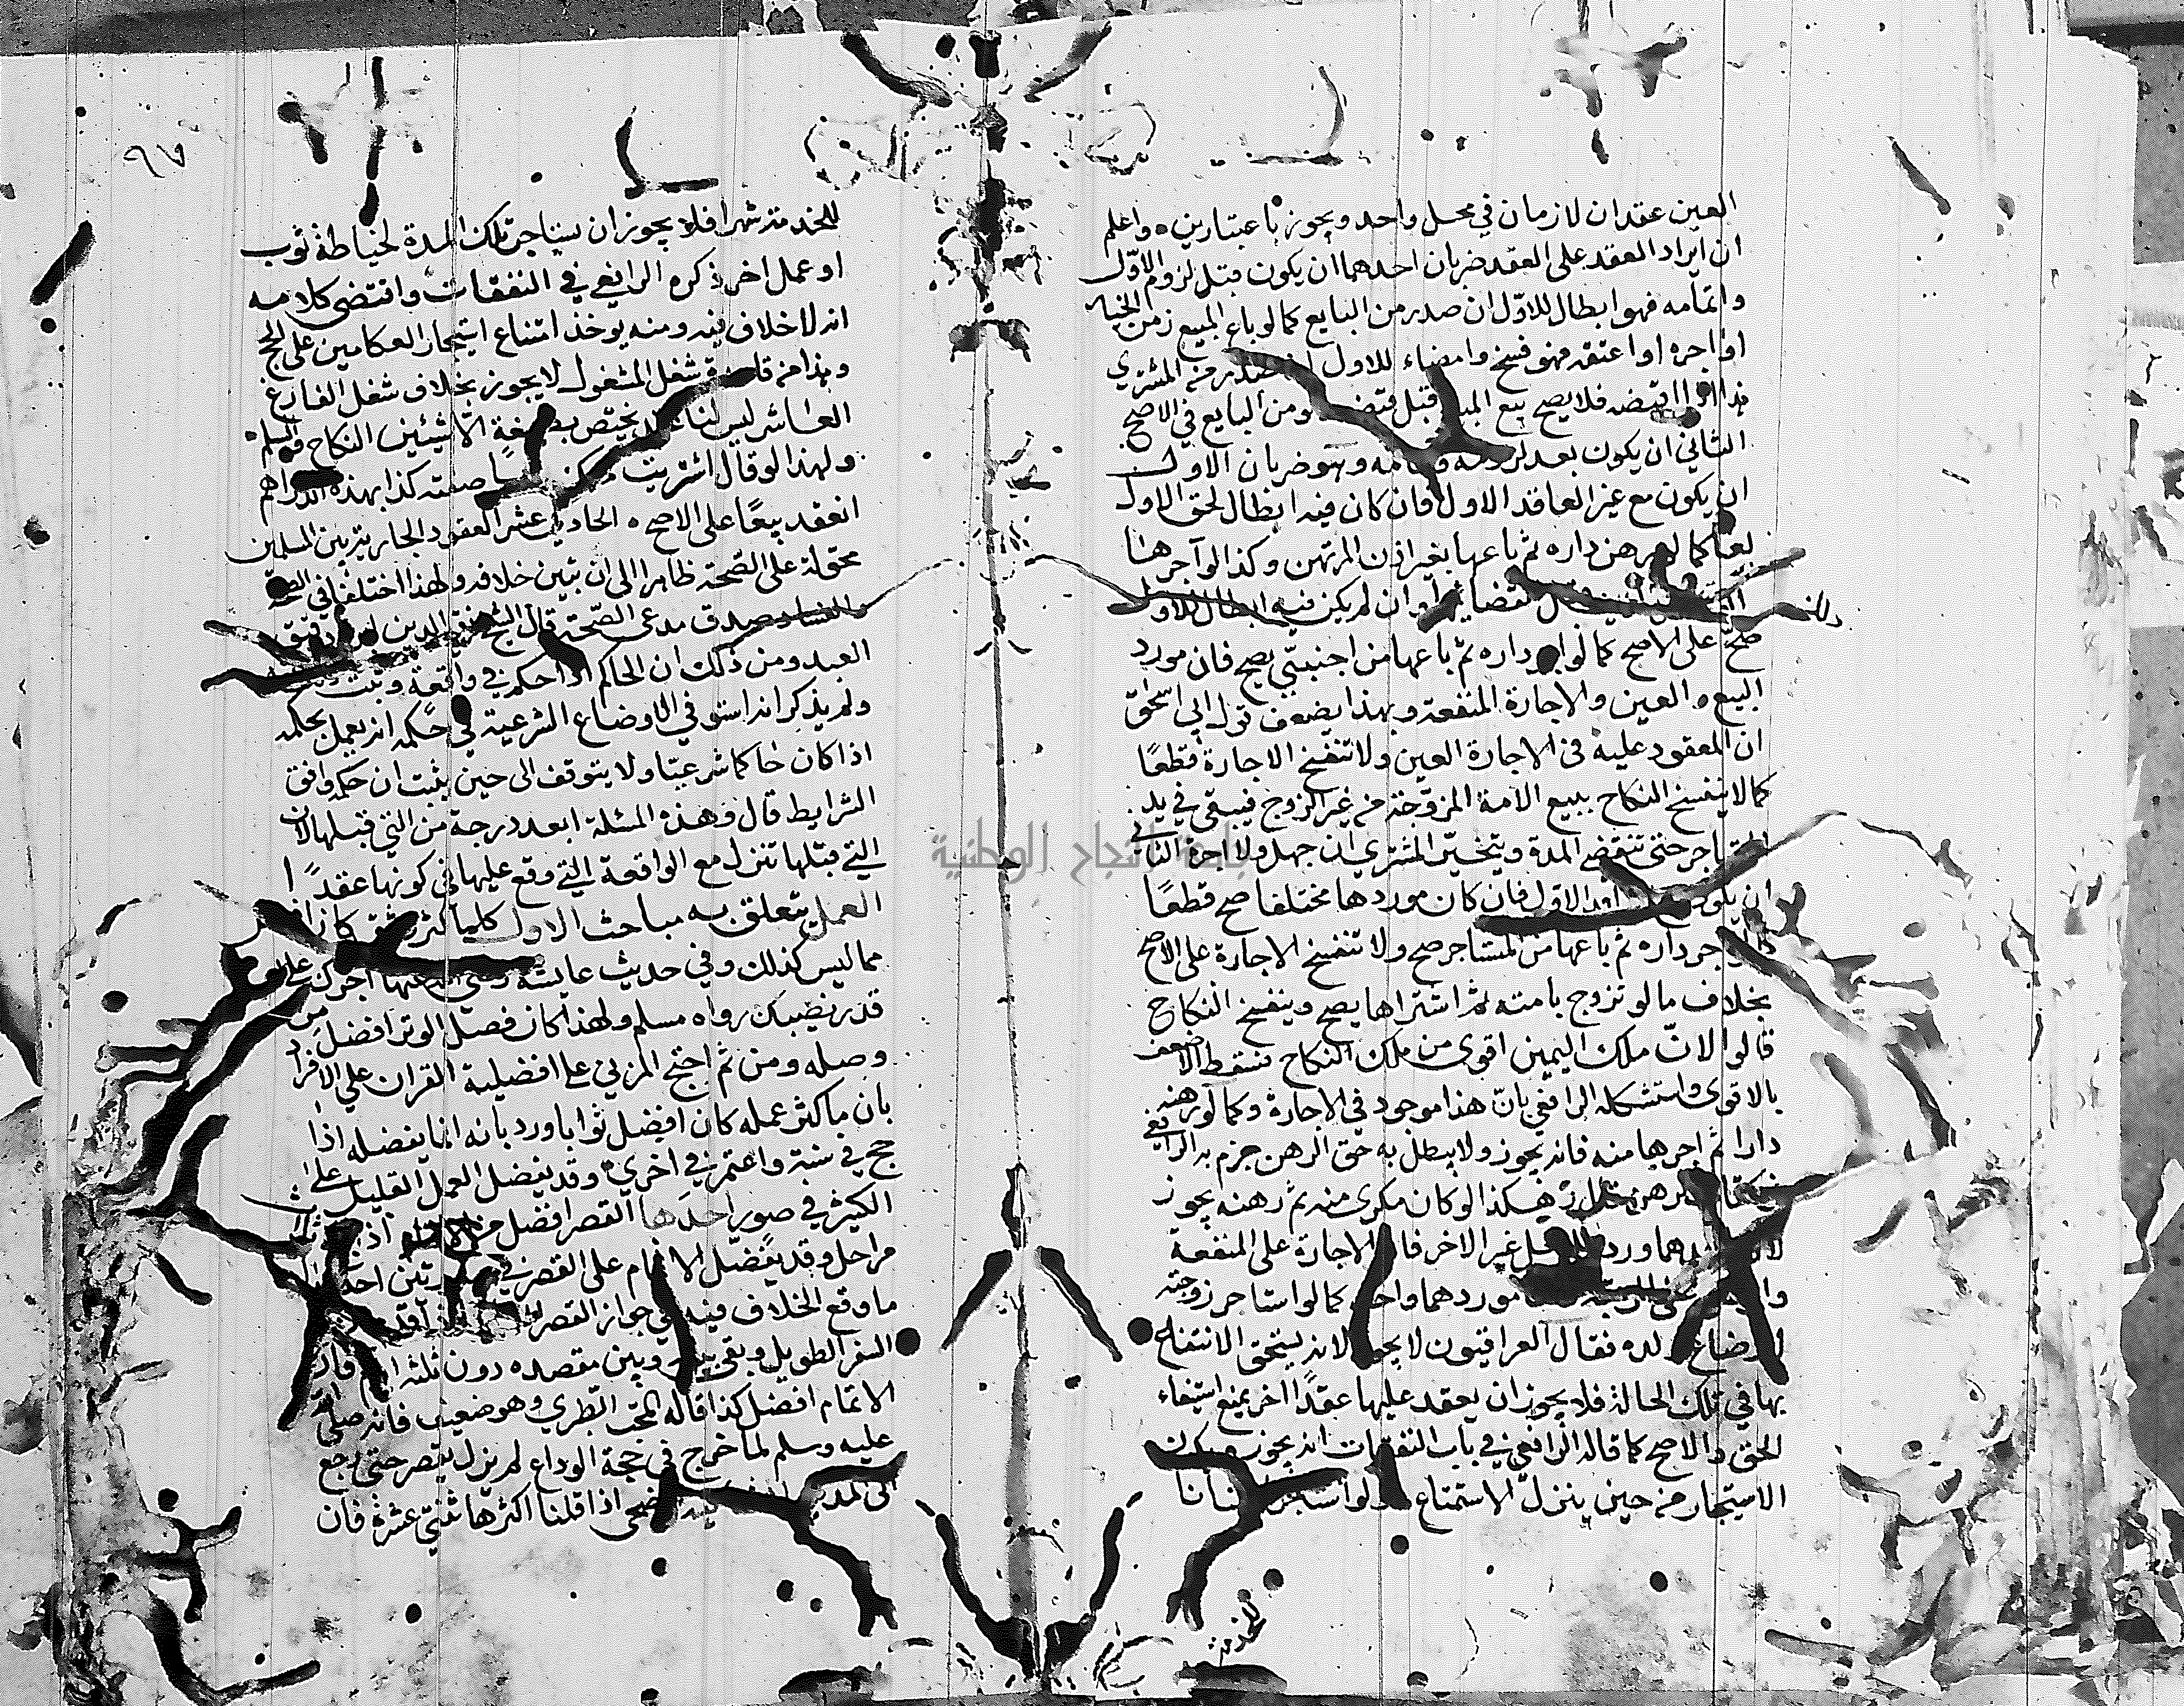 العين عقدان لازمان في محل واحد ويجوز باعتبارين ٥ واعلم
ان ايراد العقد على العقد ضربان احدهما ان يكون قبل لزوم الاوّل
واتمامه فهو ابطال للاوّل ان صدر من البايع كما لو باع المبيع زمن الخيار
او اجره او اعتقه فهو فسخ وامضاء للاول صدر من المشتري
قبضه فلا يصح بيع قبل من البايع في الاصح
الثاني ان يكون بعد لزومه وهو ضربان الاول
ان يكون مع غير العاقد الاول فان كان فيه ابطال لحق الاول
لغا كما لو رهن داره ثم باعها بغير اذن المرتهن وكذا لو آجرها
وان لم يكن فيه ابطال للاول
صح على الاصح كما لو اجر داره ثم باعها من اجنبي يصح فان مورد
البيع العين والاجارة المنفعة وبهذا يضعف قول ابي اسحٰق
ان المعقود عليه في الاجارة العين ولا تنفسخ الاجارة قطعًا
كما لا ينفسخ النكاح ببيع الامة المزوّجة من غير الزوج فيبقى في يد
حتى تنقضي المدة ويتخيّر المشتري ان جهل ولا اجرة الثاني
ان يكون الاول فان كان موردها مختلفا صح قطعًا
داره ثم باعها من المستاجر صح ولا تنفسخ الاجارة على الاصح
بخلاف ما لو تزوج بامته ثم اشتراها يصح وينفسخ النكاح
قالوا لانّ ملك اليمين اقوى من ملك النكاح فسقط الاضعف
بالاقوى واستشكله الرافعي بانّ هذا موجود في الاجارة وكما لو رهنه
دارا ثم اجرها منه فانه يجوز ولا يبطل به حق الرهن جزم به الرافعي
وهكذا لو كان مكرى منه ثم رهنه يجوز
ورد غير الاخر فان الاجارة على المنفعة
موردهما واحد كما لو استاجر زوجته
لارضاع ولده فقال العراقيون لا يجوز لانه يستحق الانتفاع
بها في تلك الحالة فلا يجوز ان يعقد عليها عقدًا اخر يمنع استيفاء
الحق والاصح كما قاله الرافعي في باب النفقات انه يجوز ويكون
الاستيجار من حين ينزل الاستمتاع
للخدمة
٩٧
للخدمة شهرا فلا يجوز ان يستاجر تلك المدة لخياطة ثوب
او عمل اخر ذكره الرافعي في النفقات واقتضى كلامه
انه لا خلاف فيه ومنه يوخذ امتناع استيجار العكامين على الحج
وهذا من قاعدة شغل المشغول لا يجوز بخلاف شغل الفارغ
العاشر ليس لنا يختص بصيغة الا شيئين النكاح والسلم
ولهذا لو قال اشتريت منك صفته كذا بهذه الدراهم
انعقد بيعًا على الاصح ٥ الحادي عشر العقود الجارية بين المسلمين
محمولة على الصّحة ظاهرا الى ان يتبين خلافه ولهذا اختلفا في الصحة
والفساد صدق مدعى الصّحة قال الشيخ تقي الدين ابن دقيق
العبد ومن ذلك ان الحاكم اذا حكم في واقعة وثبت
ولم يذكر انه استوفى الاوضاع الشرعية في حكمه انه يعمل بحكمه
اذا كان حاكما شرعيّا ولا يتوقف الى حين يثبت ان حكمه وافق
الشرايط قال وهذه المسئلة ابعد درجة من التي قبلها لان
التي قبلها تنزل مع الواقعة التي وقع عليها في كونها عقدًا
العمل يتعلق به مباحث الاول كلما كثر وشق كان افضل
مما ليس كذلك وفي حديث عايشة رضي الله عنها اجرك على
قدر نصبك رواه مسلم ولهذا كان فصل الوتر افضل من
وصله ومن ثم احتج المزني على افضلية القران على الافراد
بان ما كثر عمله كان افضل ثوابا ورد بانه انما يفضله اذا
حج في سنة واعتمر في اخرى وقد يفضل العمل القليل على
الكثير في صور احدها القصر افضل من الاتمام اذا
مراحل وقد يفضل الاتمام على القصر في صورتين احدهما
ما وقع الخلاف فيه في جواز القصر
السفر الطويل وبقي بينه وبين مقصده دون ثلثة ايام فان
الاتمام افضل كذا قاله المحب الطبري وهو ضعيف فانه صلى الله
عليه وسلم لما خرج في حجة الوداع لم يزل يقصر حتى رجع
الى المدينة الضحى اذا قلنا اكثرها ثنتي عشرة فان
جامعة النجاح الوطنية